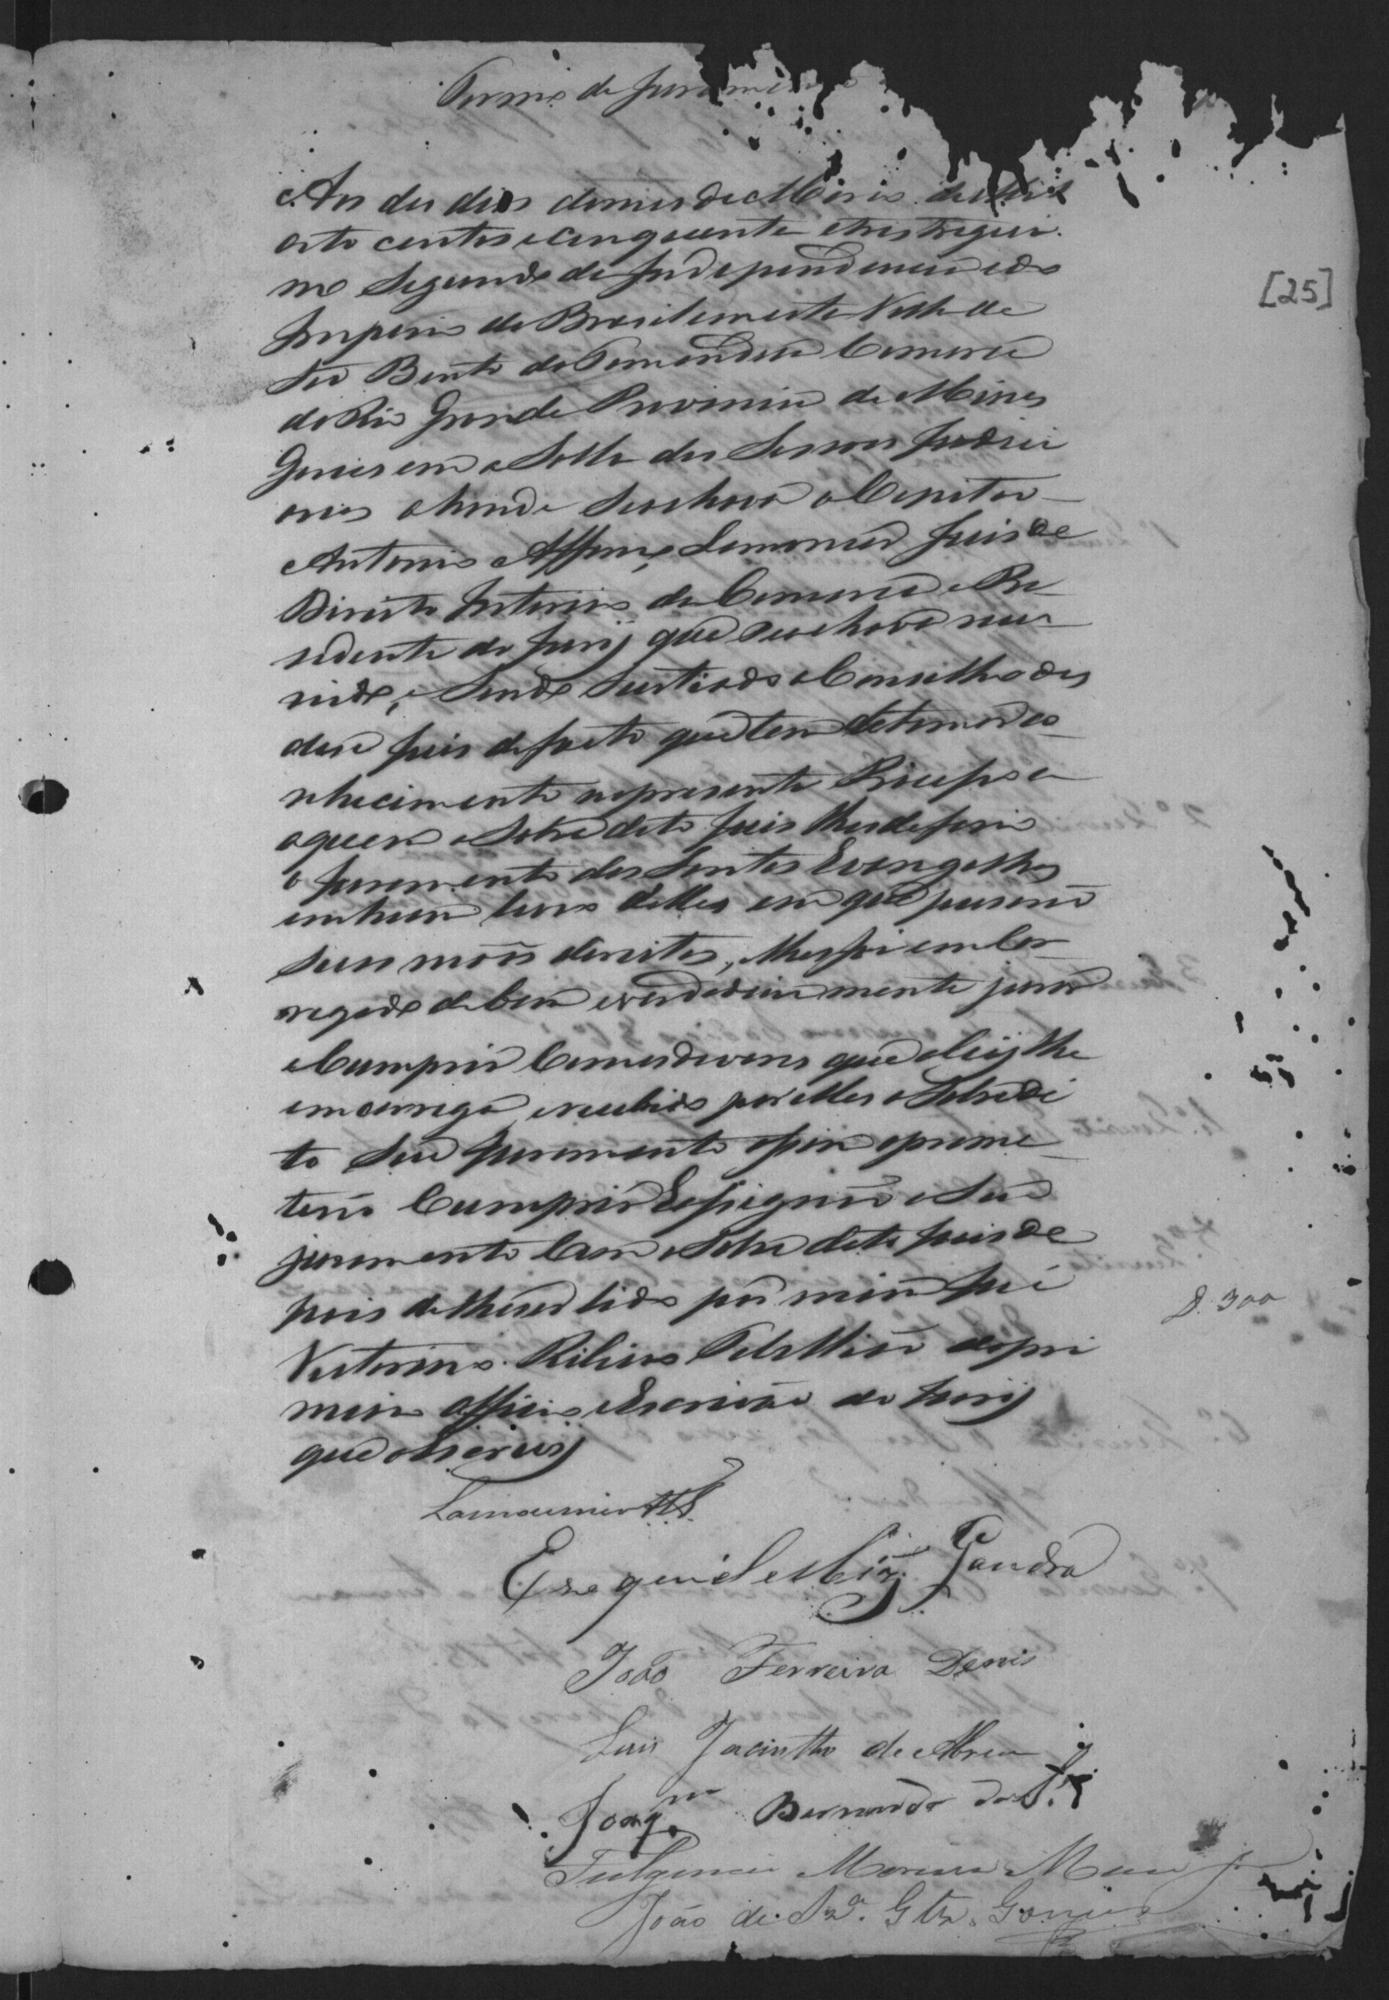 Termo de Juramento
Aos des dias do mes de Março de mil
oito centos e cincoenta e tres trigesi
mo Segundo da Independencia e do
Imperio do Brasil em esta Villa de
São Bento do Tamanduá Comarca
do Rio Grande Provincia de Minas
Geraes em a Salla das Sessoes Judici
arias a honde Se achava o Capitão
Antonio Affonço Lamonier Juis de
Direito Interino da Comarca e Pre
sidente do Jurij que Se achava reu
nido, e Sendo Surtiado o Conselho dos
dose Juis de facto que tem de tomar co
nhecimento no presente Proceço
a quem o Sobre dito Juis lhes deferio
o Juramento dos Santos Evangelhos
em hum livro delles em que puserão
suas mãos direitas, lhes foi emcar
regado de bem e verdadeira mente jurar
e Cumprir Com os deveres que a Leij lhe
emcarrega, e recebido por elles o Sobre di
to Seu Juramento assim o prome
terão Cumprir E assignarão o Seu
juramento Com o Sobre dito Juis de
pois de lhe ser lido por mim José
Victorino Ribeiro Tabellião do pri
meiro Officio e Escrivão do Jurij
que o Escrevij
[25]
D. 300
Lamounier
Exequiel Gandra
João Ferreira Denis
Luis Jacintho de Abreu
Joaqm Bernardo da Sª
Fulgencio Moreira Maia
João de